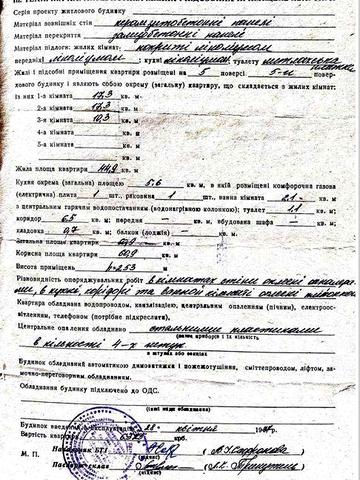 Серія проекту житлового будинку
Матеріал зовнішніх стін керамзитобетонні панелі
Матеріал перекриття залізобетонні панелі
Матеріал підлоги: жилих кімнат: покриті лінолеумом
передній лінолеум; кухні лінолеум, туалету метлахська плитка
Жилі і підсобні приміщення квартири розміщені на 5 поверсі 5-и поверхо-
вого будинку і являють собою окрему (загальну) квартиру, що складається з жилих кімнат:
Із них 1-а кімната 17,3 кв. м
2-а кімната 17,3 кв. м
3-я кімната 10,3 кв. м
4-а кімната кв. м
5-а кімната кв. м
Жила площа квартири 44,9 кв. м
Кухня окрема (загальна) площею 5.6 кв. м, в якій розміщені комфорочна газова
(електрична) плита 1 шт., раковина 1 шт., ванна кімната 2.1 кв. м
з центральним гарячим водопостачанням (водонагрівною колонкою); туалет 1.1 кв. м;
коридор 6.5 кв. м; передня — кв. м, вбудована шафа — кв. м;
кладовка 0,7 кв. м; балкон (лоджія) — кв. м
Загальна площа квартири 60,9 кв. м
Корисна площа квартири 60.9 кв. м
Висота приміщень h-2.53 м
Різновидність опоряджувальних робіт в кімнатах стіни оклеєні шпалера-
ми, в кухні, корідорі та ванной кімнаті
Квартира обладнана водопроводом, каналізацією, центральним опаленням (пічним), електроос-
вітленням, телефоном (потрібне підкреслити).
Центральне опалення обладнано стальними пластинами
(назва приборів і їх кількість
в кількості 4-х штук
в штуках або секціях
Будинок обладнаний автоматикою димовитяжки і пожежотушіння, сміттєпроводом, ліфтом, за-
мочно-переговорним обладнанням.
Обладнання будинку підключено до ОДС.
(інші види обладнання)
Будинок введений в експлуатацію 28 квітня 19
Вартість квартири крб.
Начальник БТІ
М. П.
(підпис)